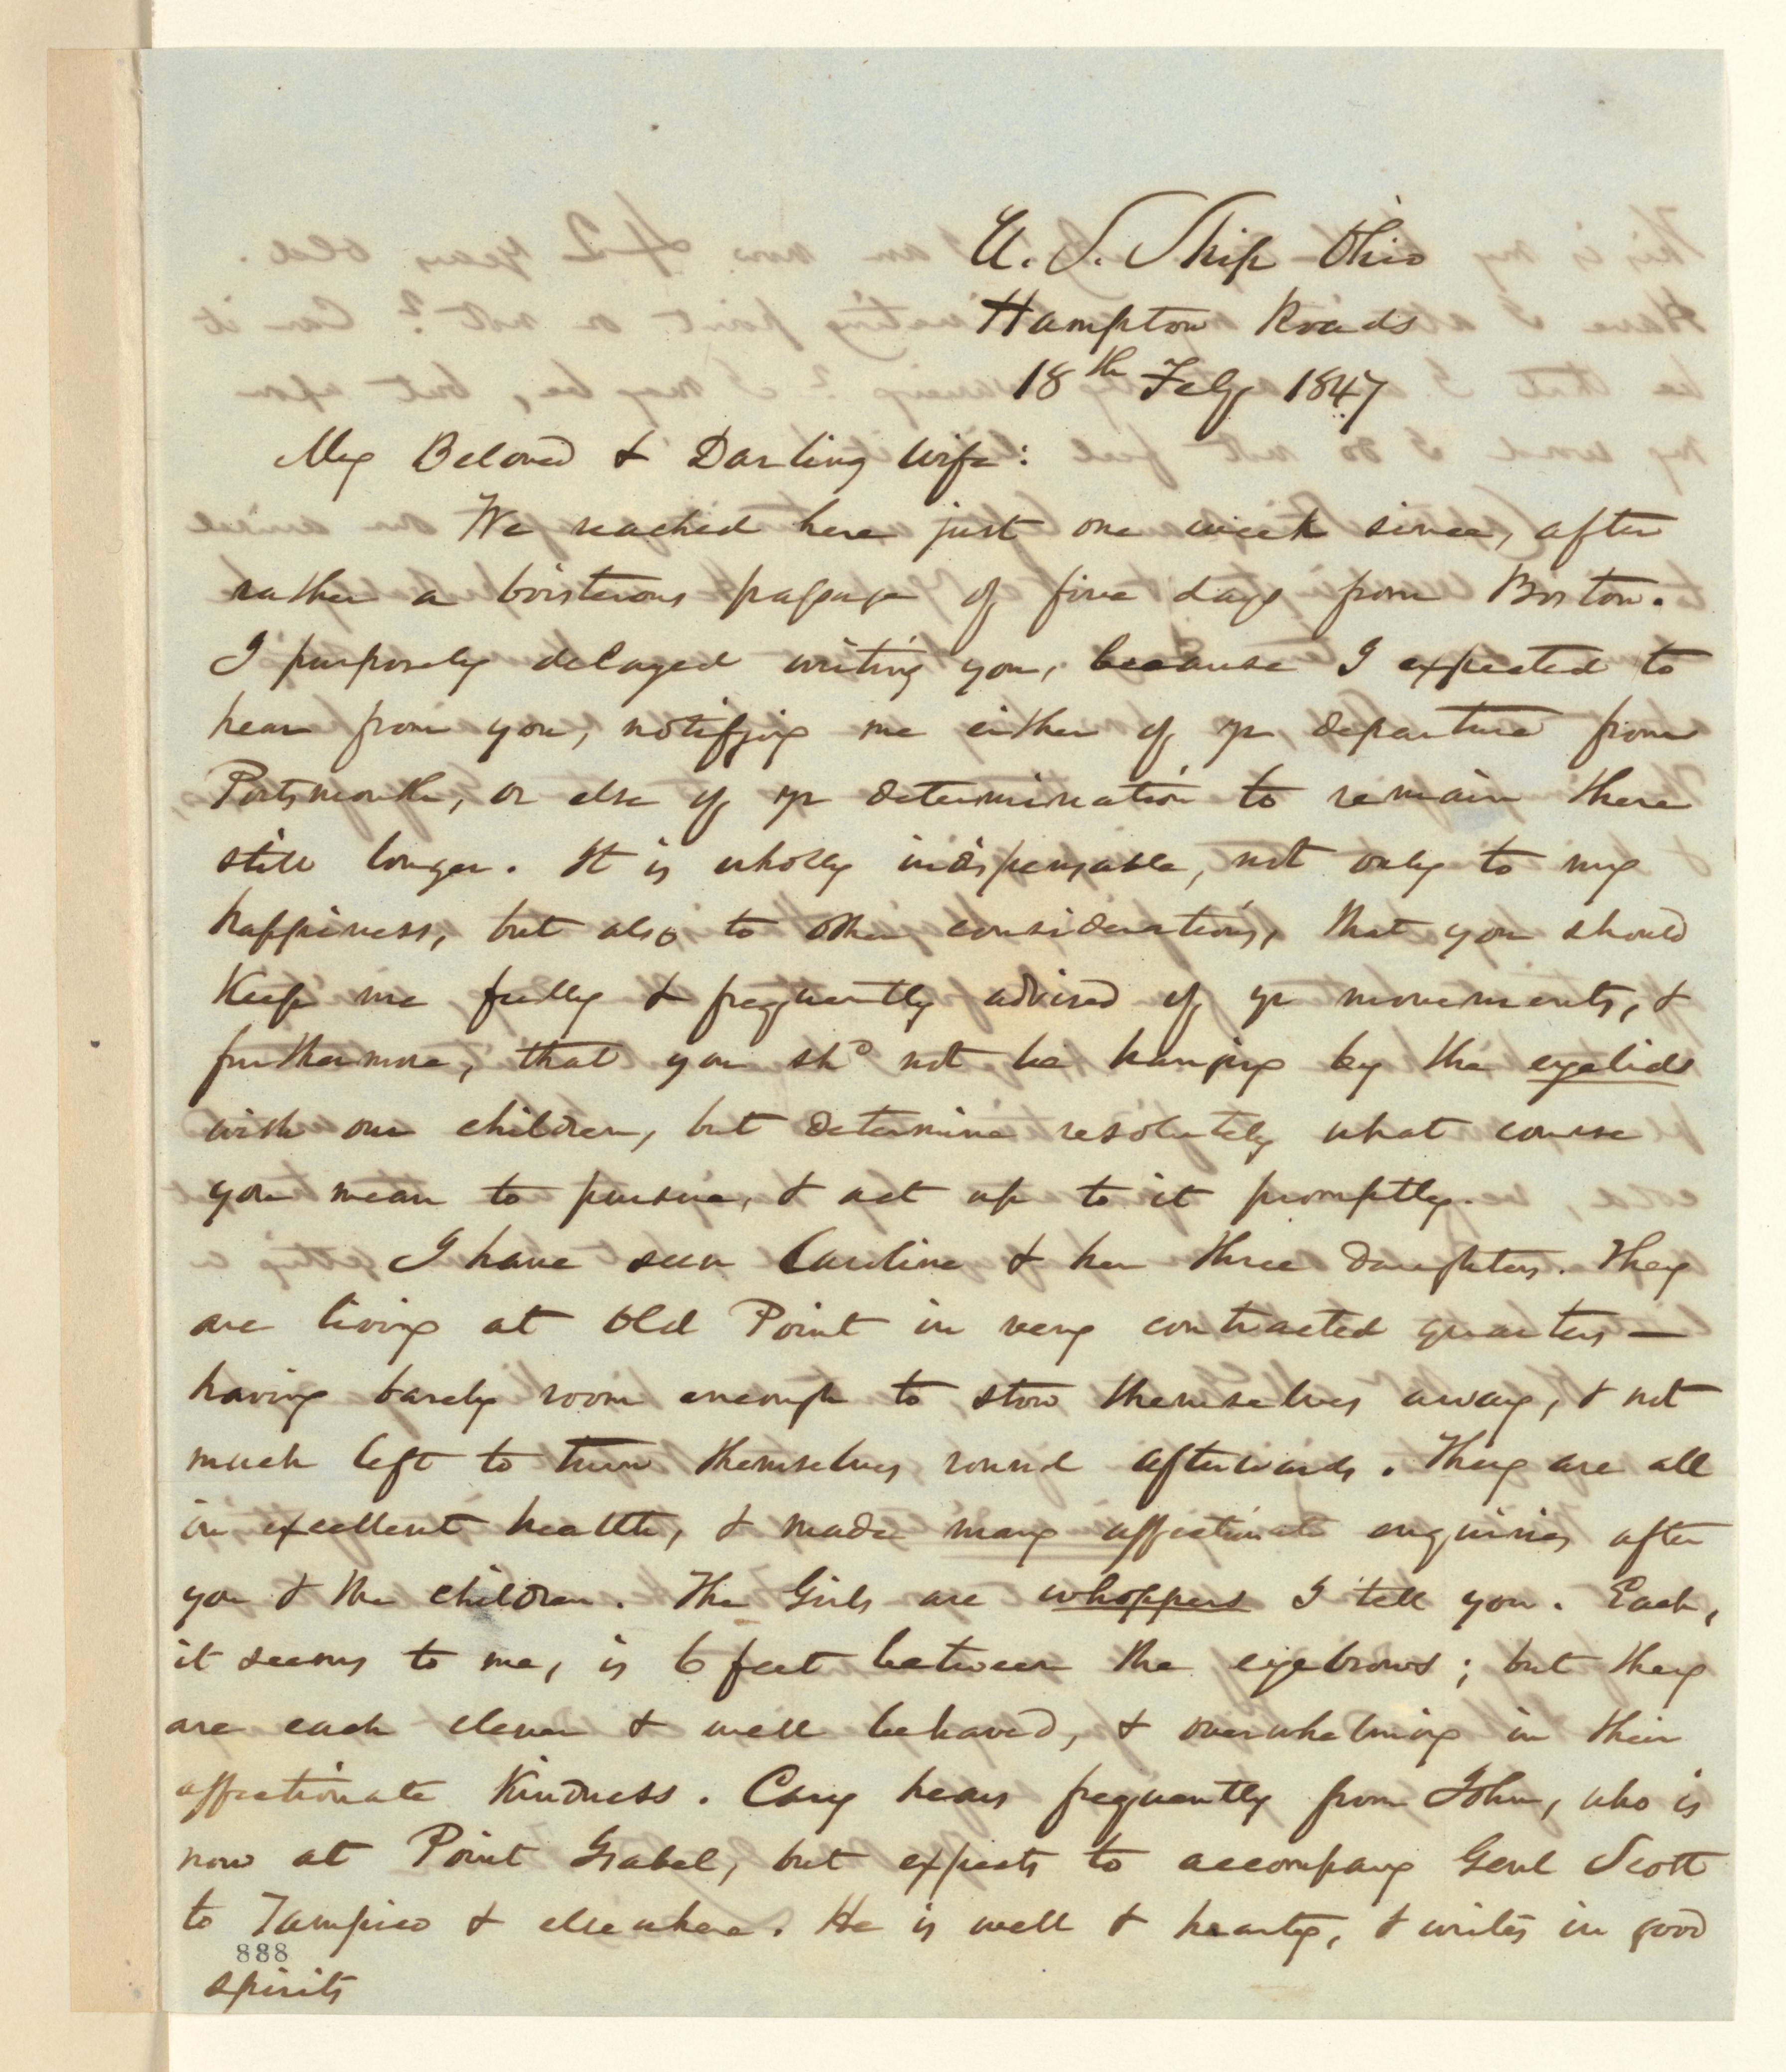 U. S. Ship Ohio
Hampton Roads
18th Feby 1847
My Beloved & Darling Wife:
We reached here just one week since, after
rather a boisterous passage of five days from Boston.
I purposely delayed writing you, because I expected to
hear from you, notifying me either of yr departure from
Portsmouth, or else of yr determination to remain there
still longer. It is wholly indispensable, not only to my
happiness, but also to other considerations, that you should
keep me fully & frequently advised of yr movements, &
furthermore, that you shd not be hanging by the eyelids
with our children, but determine resolutely what course
you mean to pursue, & act up to it promptly.
I have seen Caroline & her three daughters. They
are living at Old Point in very contracted quarters —
having barely room enough to stow themselves away, & not
much left to turn themselves round afterwards. They are all
in excellent health, & made many affectionate enquiries after
you & the children. The Girls are whoppers I tell you. Each,
it seems to me, is 6 feet between the eyebrows; but they
are each clever & well behaved, & overwhelming in their
affectionate kindness. Cary hears frequently from John, who is
now at Point Isabel, but expects to accompany Genl Scott
to Tampico & elsewhere. He is well & hearty, & writes in good
888
spirits